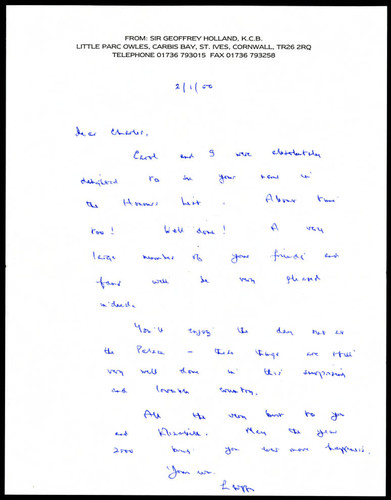 FROM: SIR GEOFFREY HOLLAND, K.C.B.
LITTLE PARC OWLES, CARBIS BAY, ST. IVES, CORNWALL, TR26 2RQ
TELEPHONE 01736 793015 FAX 01736 793258
2/1/00
Dear Charles,
Carol and I were absolutely
delighted to see your name in
the Honours List. About time
too! Well done! A very
large number of your friends and
fans will be very pleased
indeed.
You'll enjoy the day out at
the Palace – these things are still
very well done in this
and lovable country.
All the very best to you
and May the year
2000 bring you ever more happiness.
Yours ever,